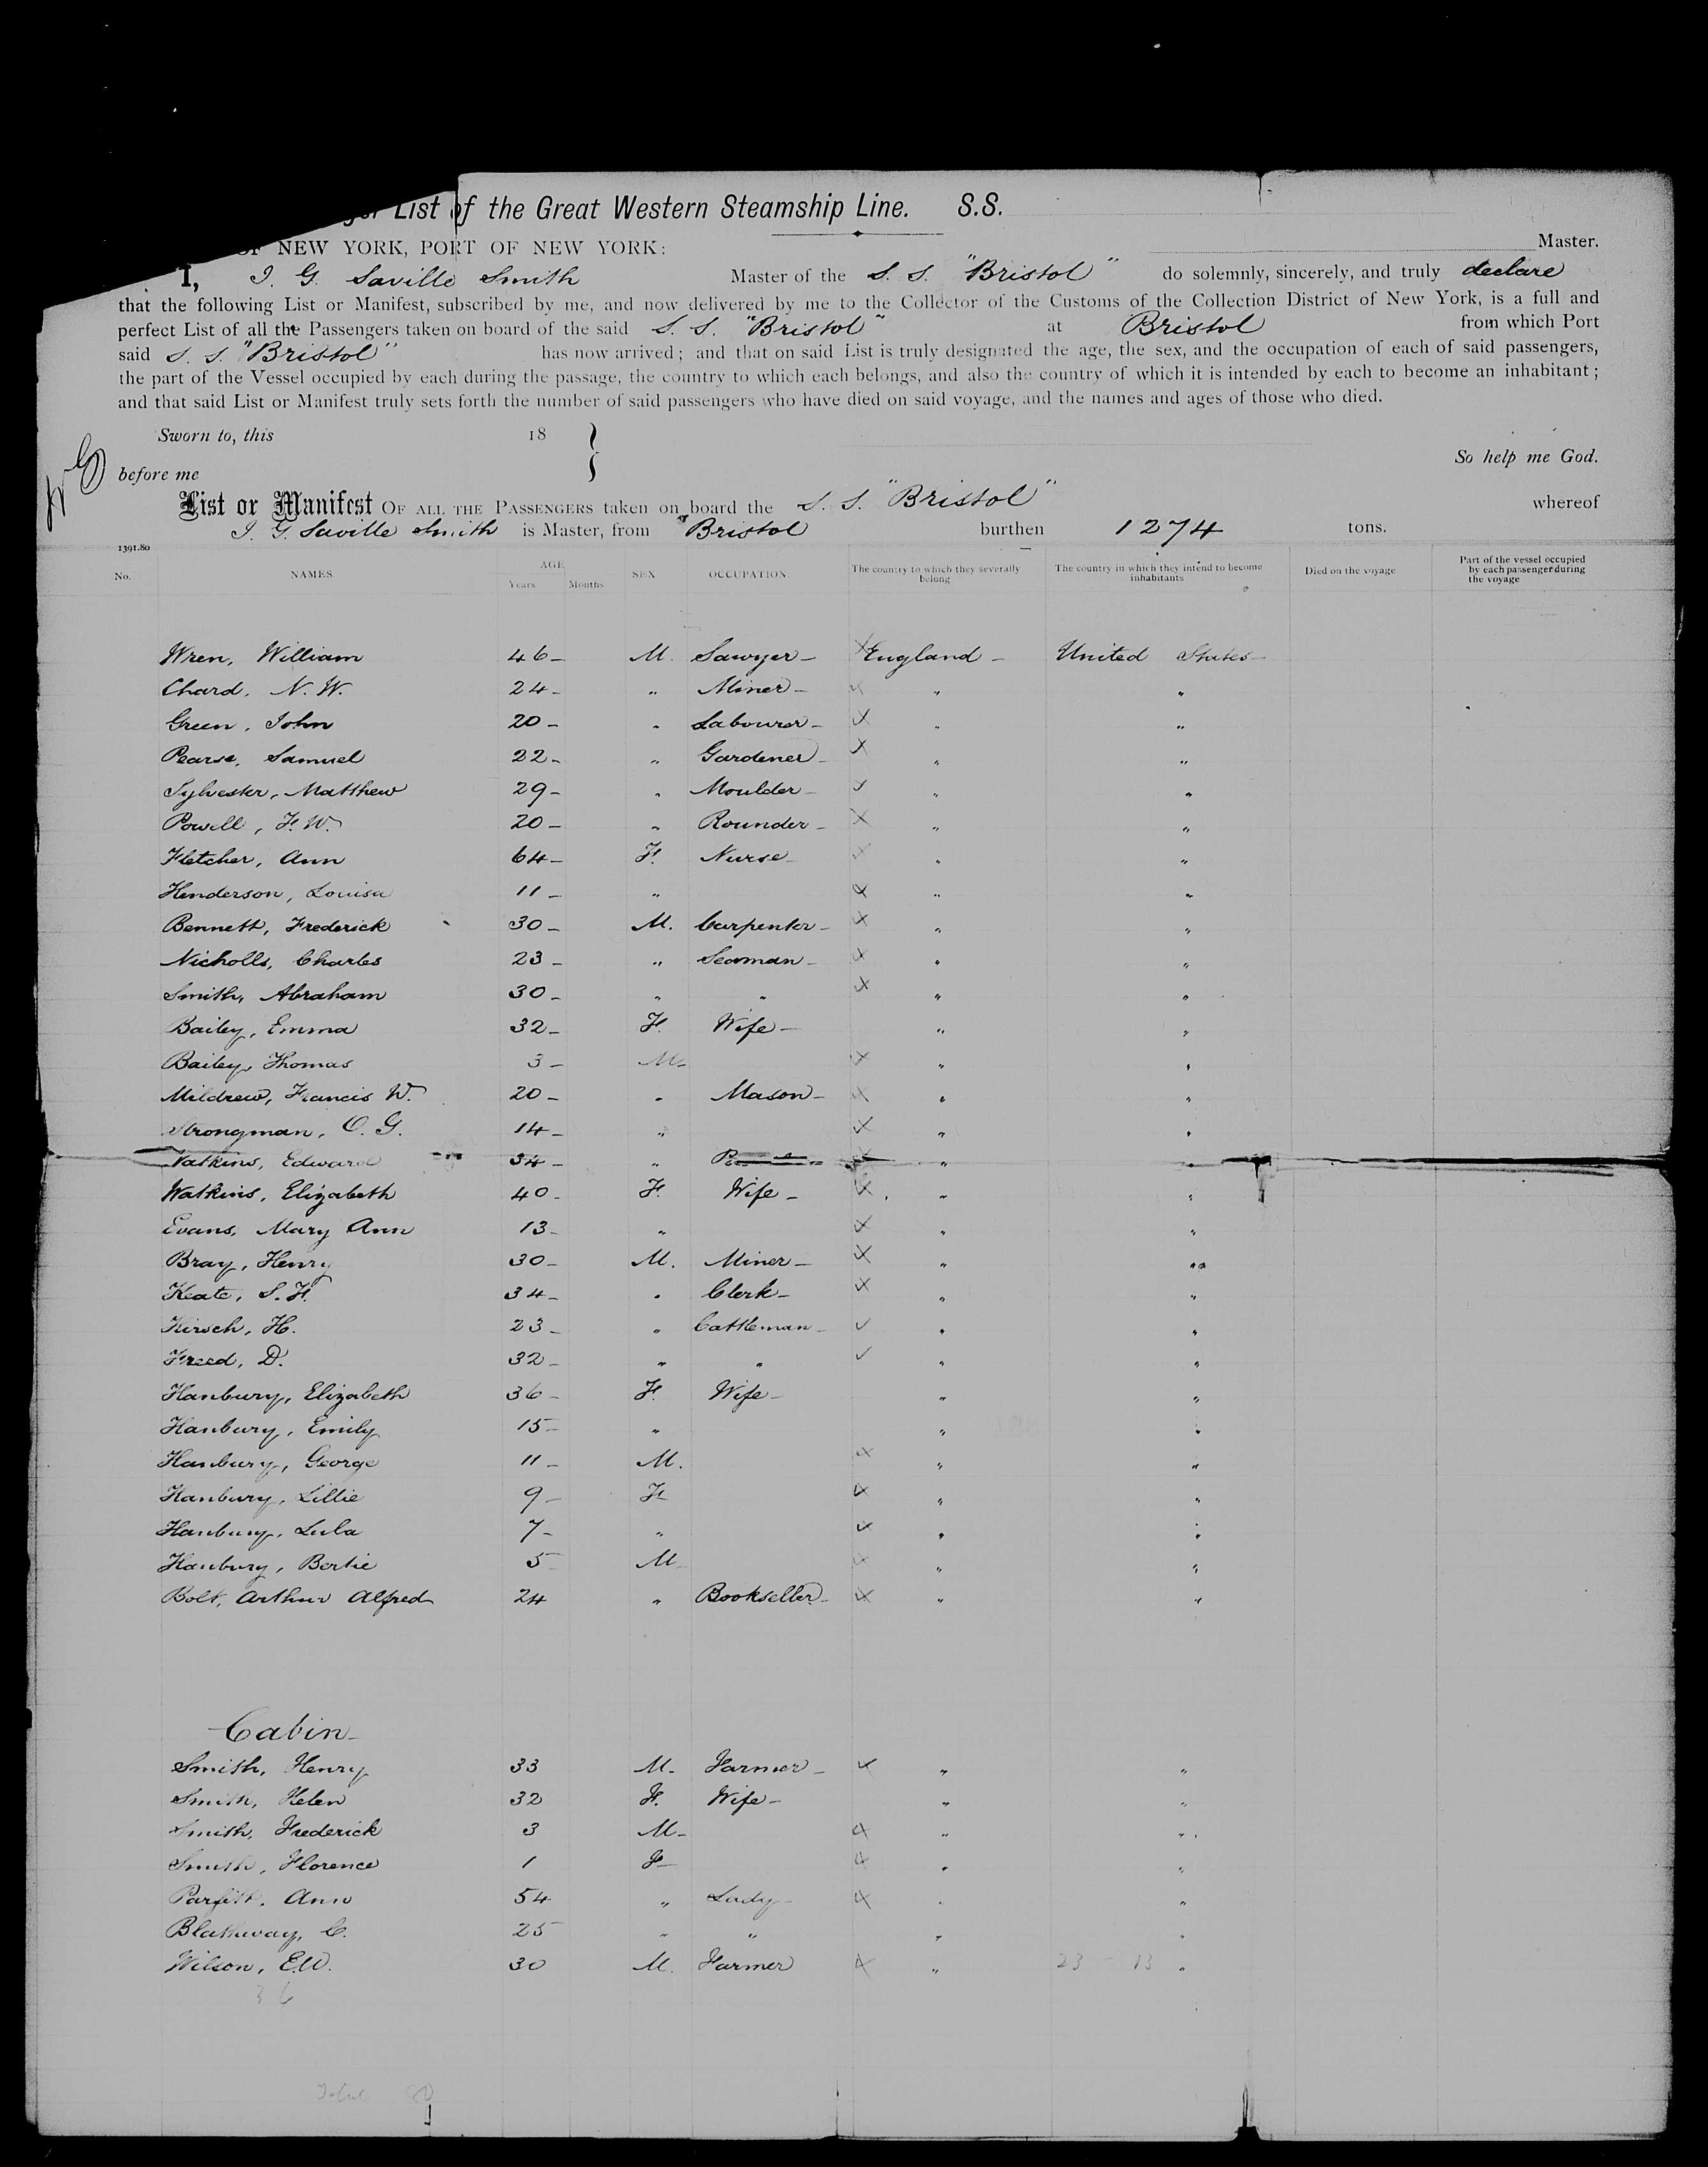 List of the Great Western Steamship Line. S.S.
OF NEW YORK, PORT OF NEW YORK: Master.
I, I. G. Saville Smith Master of the S. S. "Bristol" do solemnly, sincerely, and truly declare
that the following List or Manifest, subscribed by me, and now delivered by me to the Collector of the Customs of the Collection District of New York, is a full and
perfect List of all the Passengers taken on board of the said S. S. "Bristol" at Bristol from which Port
said S. S. "Bristol" has now arrived; and that on said List is truly designated the age, the sex, and the occupation of each of said passengers,
the part of the Vessel occupied by each during the passage, the country to which each belongs, and also the country of which it is intended by each to become an inhabitant;
and that said List or Manifest truly sets forth the number of said passengers who have died on said voyage, and the names and ages of those who died.
Sworn to, this 18
before me So help me God.
List or Manifest OF ALL THE PASSENGERS taken on board the S. S. "Bristol" whereof
I. G. Saville Smith is Master, from Bristol burthen 1274 tons.
1391.80
No. NAMES AGE Years Months SEX OCCUPATION. The country to which they severally belong The country in which they intend to become inhabitants Died on the voyage Part of the vessel occupied by each passenger during the voyage
Wren, William 46 - M. Sawyer - England - United States -
Chard, N. W. 24 - " Miner - " "
Green, John 20 - " Labourer - " "
Pearse, Samuel 22 - " Gardener - " "
Sylvester, Matthew 29 - " Moulder - " "
Powell, F. W. 20 - " Rounder - " "
Fletcher, Ann 64 - F. Nurse - " "
Henderson, Louisa 11 - " " "
Bennett, Frederick 30 - M. Carpenter - " "
Nicholls, Charles 23 - " Seaman - " "
Smith, Abraham 30 - " " " "
Bailey, Emma 32 - F. Wife - " "
Bailey, Thomas 3 - M - " "
Mildrew, Francis W. 20 - " Mason - " "
Strongman, O. G. 14 - " " "
Watkins, Edward 34 - " " "
Watkins, Elizabeth 40 - F. Wife - " "
Evans, Mary Ann 13 - " " "
Bray, Henry 30 - M. Miner - " "
Keate, S. F. 34 - " Clerk - " "
Kirsch, H. 23 - " Cattleman - " "
Freed, D. 32 - " " " "
Hanbury, Elizabeth 36 - F. Wife - " "
Hanbury, Emily 15 - " " "
Hanbury, George 11 - M. " "
Hanbury, Lillie 9 - F. " "
Hanbury, Lula 7 - " " "
Hanbury, Bertie 5 - M " "
Bolt, Arthur Alfred 24 " Bookseller - " "
Cabin -
Smith, Henry 33 M. Farmer - " "
Smith, Helen 32 F. Wife - " "
Smith, Frederick 3 M - " "
Smith, Florence 1 F " "
Parfitt, Ann 54 " Lady " "
Blathway, C. 25 " " " "
Wilson, E.W. 30 M. Farmer " 23 - 13 "
36
Total